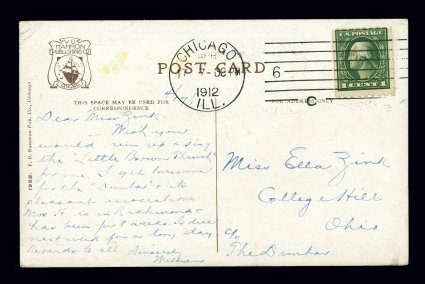 V.O.
HAMMON
PUBLISHING CO.
CHICAGO
POST CARD
CHICAGO
APR
1912
ILL.
6
U.S. POSTAGE
1 CENT 1
THIS SPACE MAY BE USED FOR
CORRESPONDENCE
FOR ADDRESS ONLY
C
1958. V. O. Hammon Pub. Co., Chicago
Dear Miss Zink:
Wish you
would run up & sing
the "Little Brown Thrush"
for me. I get lonesome
for the "Dunbar" & its
pleasant associations.
Mrs H. is in Richmond &
has been for weeks. Is due
next week for a long stay
Regards to all. Sincerely
William
Miss Ella Zink
College Hill
Ohio
c/o
The Dunbar.